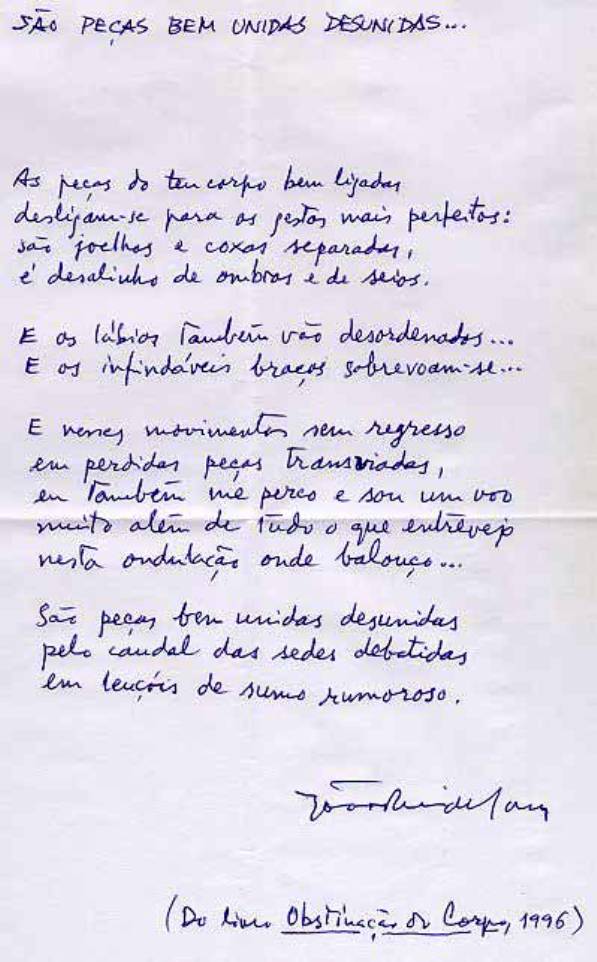 SÃO PEÇAS BEM UNIDAS DESUNIDAS...
As peças do teu corpo bem ligadas
desligam-se para os gestos mais perfeitos:
são joelhos e coxas separadas,
é desalinho de ombros e de seios.
E os lábios também vão desordenados...
E os infindáveis braços sobrevoam-se...
E nesses movimentos sem regresso
em perdidas peças transviadas,
eu também me perco e sou um voo
muito além de tudo o que entrevejo
nesta ondulação onde balouço...
São peças bem unidas desunidas
pelo caudal das sedes debatidas
em lençóis de sumo rumoroso.
João Rui de Sousa
(Do livro Obstinação do Corpo, 1996)